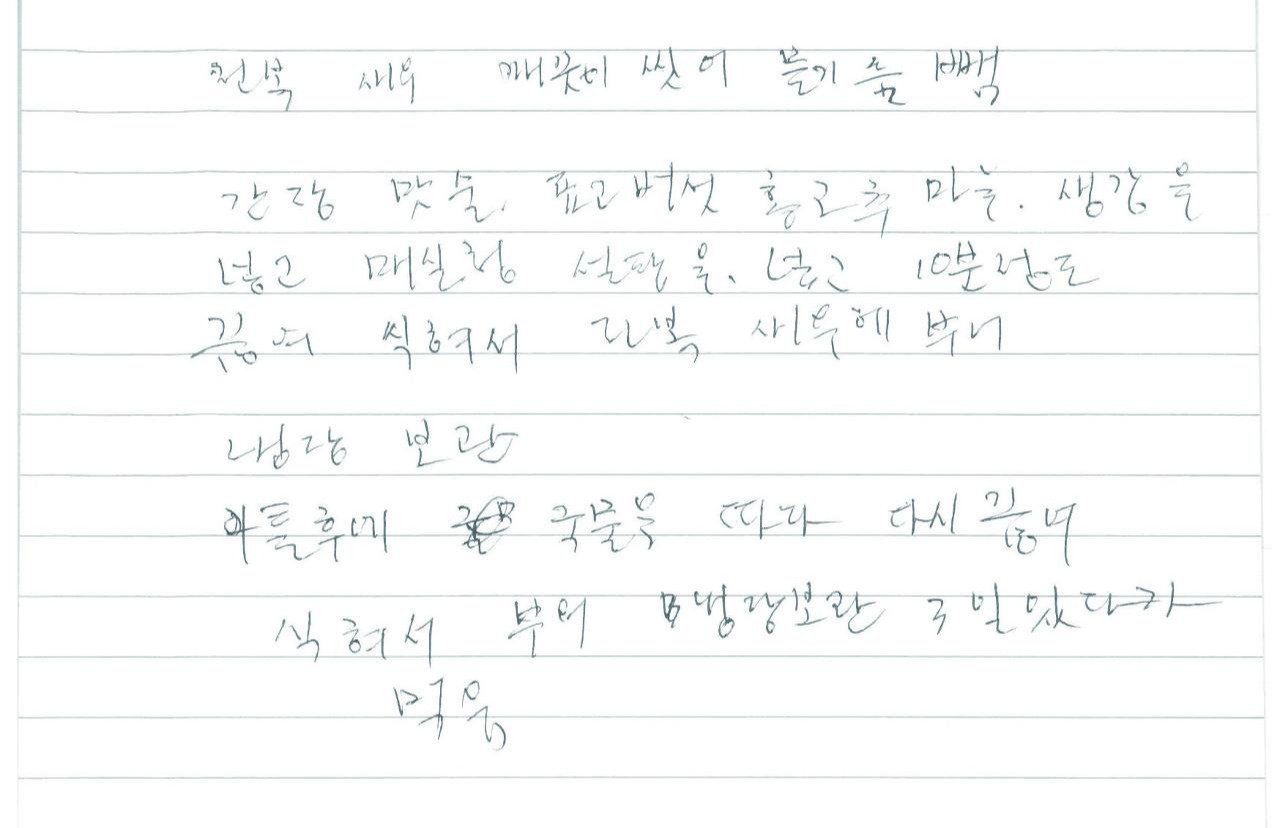 전복 새우 깨끗이 씻어 물기를 뺌
간장 맛술. 표고버섯 홍고추 마늘. 생강을
넣고 매실청 설탕을. 넣고 10분정도
끓여 식혀서 전복 새우에 부어
냉장 보관
이틀후에 국물을 따라 다시 끓여
식혀서 부어 냉장보관 3일있다가
먹음